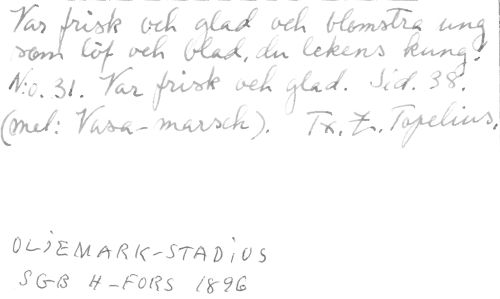 Var frisk och glad och blomstra ung
som löf och blad, du lekens kung!
N:o. 31. Var frisk och glad. Sid. 38.
(mel: Vasa-marsch). Tx. Z. Topelius.
OLIEMARK-STADIUS
SGB H-FORS 1896